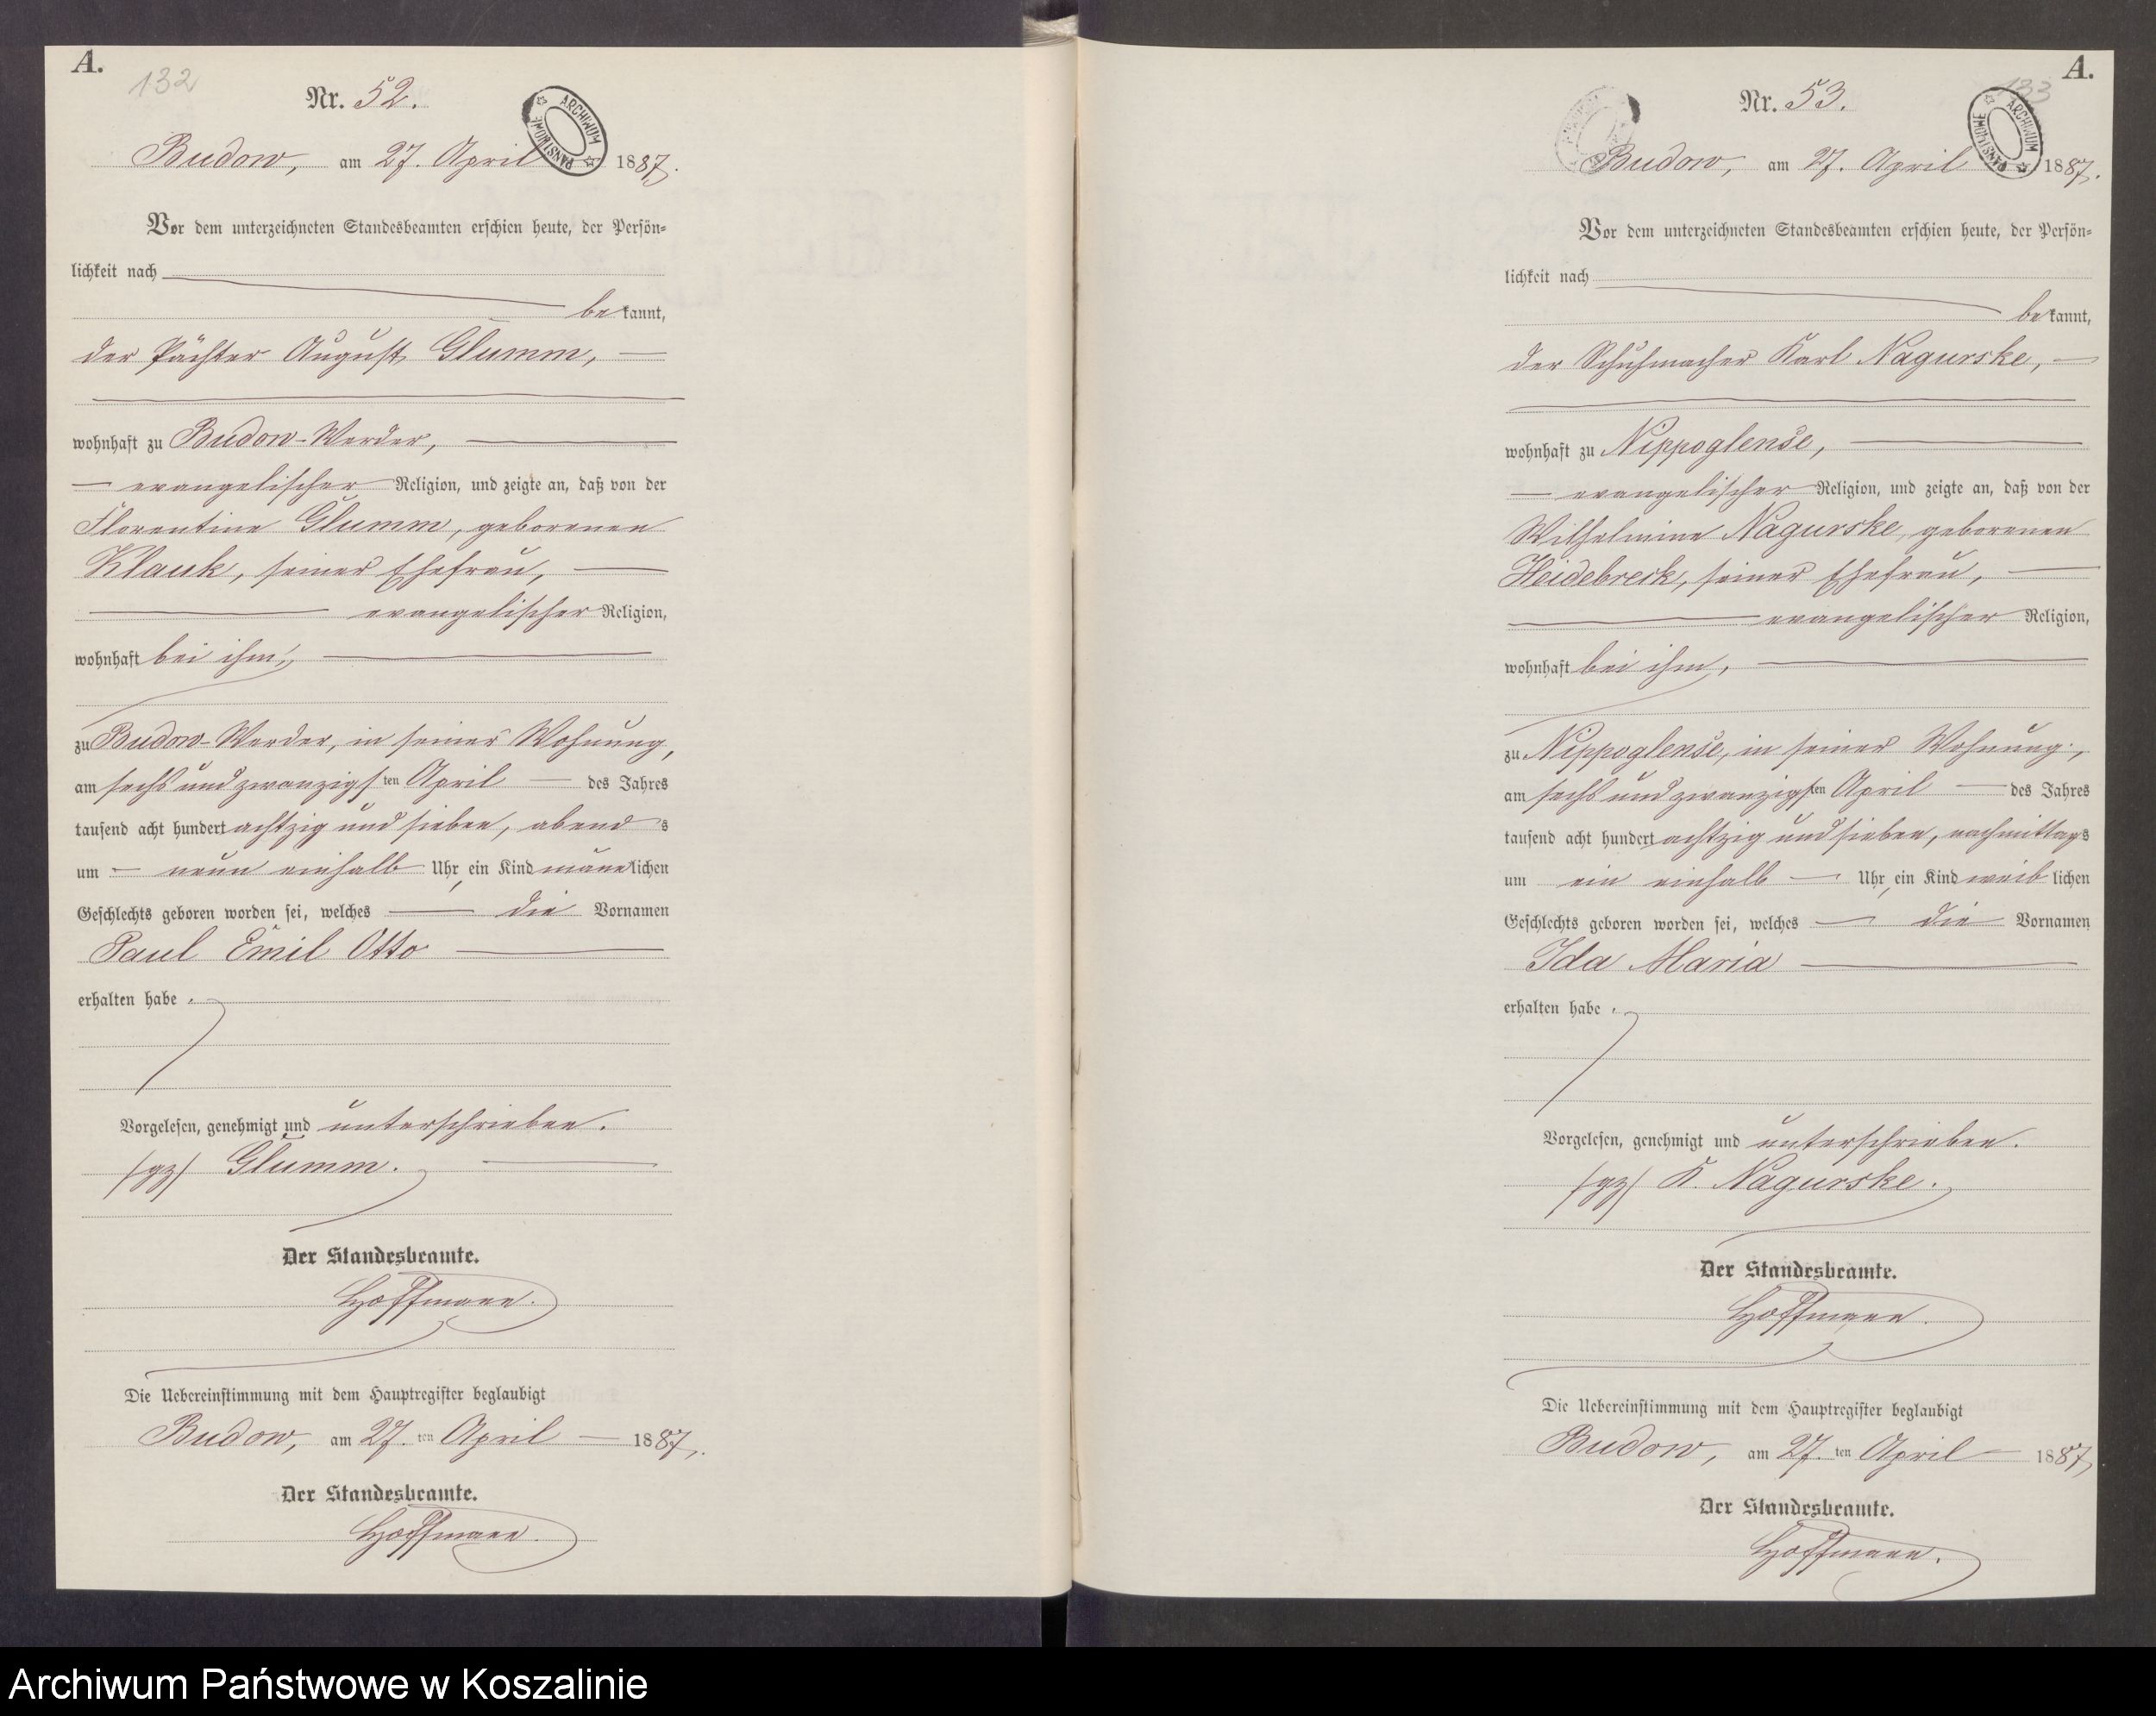 A.
132
Nr. 52.
ARCHIWUM PAŃSTWOWE
Budow, am 27. April 1887.
Vor dem unterzeichneten Standesbeamten erschien heute, der Persön-
lichkeit nach
bekannt,
der Pächter August Glumm,
wohnhaft zu Budow-Werder,
evangelischer Religion, und zeigte an, daß von der
Florentine Glumm, geborenen
Klauk, seiner Ehefrau,
evangelischer Religion,
wohnhaft bei ihm,
zu Budow-Werder, in seiner Wohnung,
am sechs und zwanzigsten April des Jahres
tausend acht hundert achtzig und sieben, abends
um neun einhalb Uhr, ein Kind männlichen
Geschlechts geboren worden sei, welches die Vornamen
Paul Emil Otto
erhalten habe.
Vorgelesen, genehmigt und unterschrieben.
/gz/ Glumm.
Der Standesbeamte.
Hoffmann.
Die Uebereinstimmung mit dem Hauptregister beglaubigt
Budow, am 27.ten April 1887.
Der Standesbeamte.
Hoffmann.
A.
133
Nr. 53.
ARCHIWUM PAŃSTWOWE
Budow, am 27. April 1887.
Vor dem unterzeichneten Standesbeamten erschien heute, der Persön-
lichkeit nach
bekannt,
der Schuhmacher Karl Nagurske,
wohnhaft zu Nippoglense,
evangelischer Religion, und zeigte an, daß von der
Wilhelmine Nagurske, geborenen
Heidebreck, seiner Ehefrau,
evangelischer Religion,
wohnhaft bei ihm,
zu Nippoglense, in seiner Wohnung,
am sechs und zwanzigsten April des Jahres
tausend acht hundert achtzig und sieben, nachmittags
um ein einhalb Uhr, ein Kind weiblichen
Geschlechts geboren worden sei, welches die Vornamen
Ida Maria
erhalten habe.
Vorgelesen, genehmigt und unterschrieben.
/gz/ K. Nagurske.
Der Standesbeamte.
Hoffmann.
Die Uebereinstimmung mit dem Hauptregister beglaubigt
Budow, am 27.ten April 1887,
Der Standesbeamte.
Hoffmann.
Archiwum Państwowe w Koszalinie